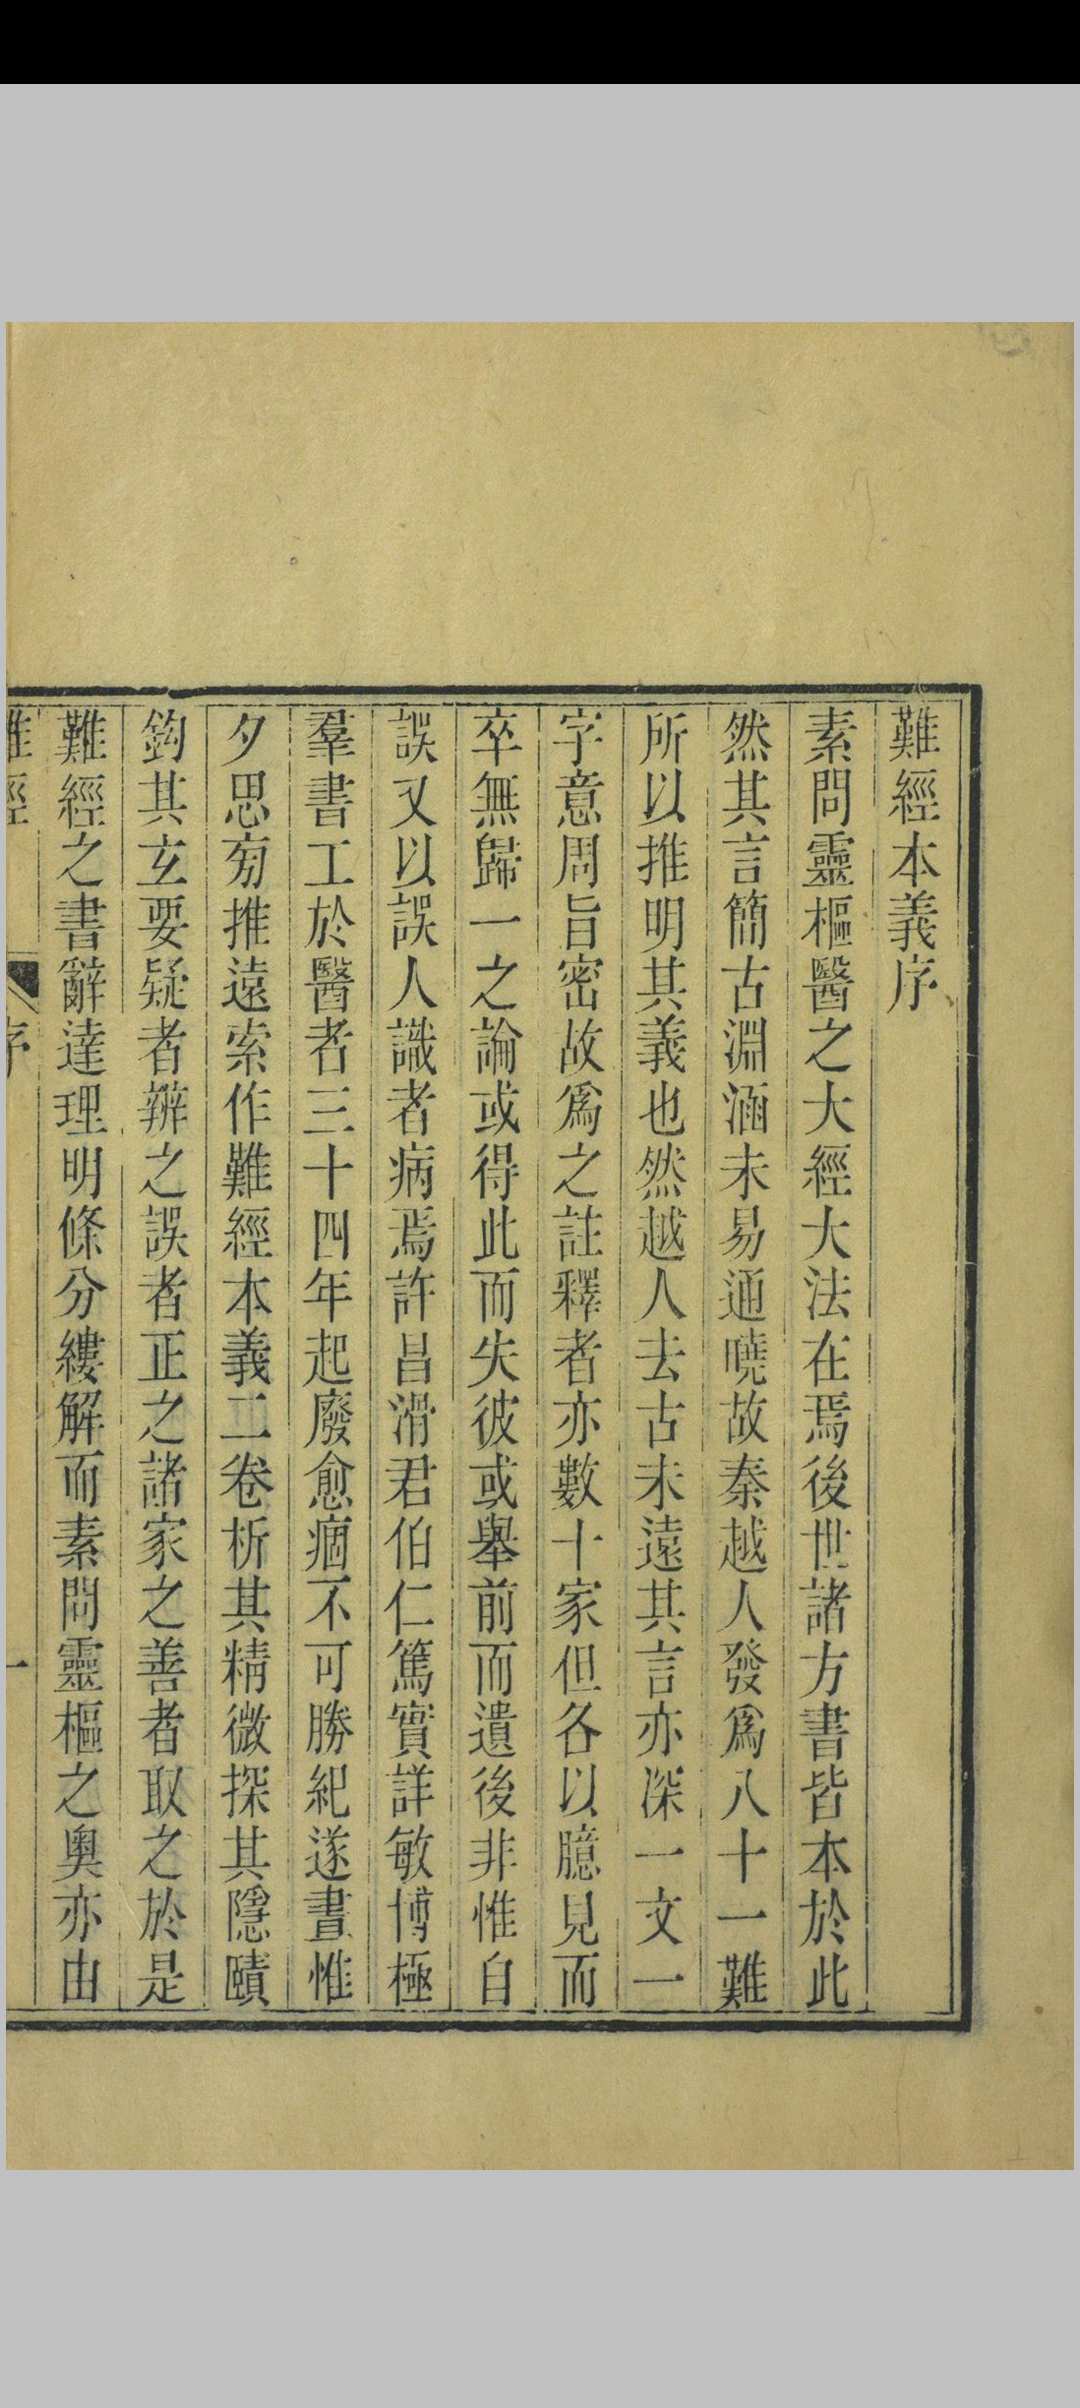 難經本義序
素問靈樞醫之大經大法在焉後世諸方書皆本於此
然其言簡古淵涵未易通曉故秦越人發爲八十一難
所以推明其義也然越人去古未遠其言亦深一文一
字意周旨密故爲之註釋者亦數十家但各以臆見而
卒無歸一之論或得此而失彼或舉前而遺後非惟自
誤又以誤人識者病焉許昌滑君伯仁篤實詳敏博極
羣書工於醫者三十四年起廢愈痼不可勝紀遂晝惟
夕思旁推遠索作難經本義二卷析其精微探其隱賾
鈎其玄要疑者辨之誤者正之諸家之善者取之於是
難經之書辭達理明條分縷解而素問靈樞之奥亦由
難經 序 一